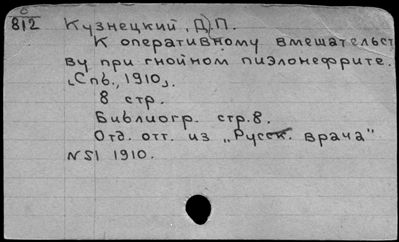 812 Кузнецкий, Д.П.
К оперативному вмешательст
ву при гнойном пиэлонефрите.
[Спб., 1910].
8 стр.
Библиогр. стр. 8.
Отд. отт. из „Русск. врача"
N51 1910.